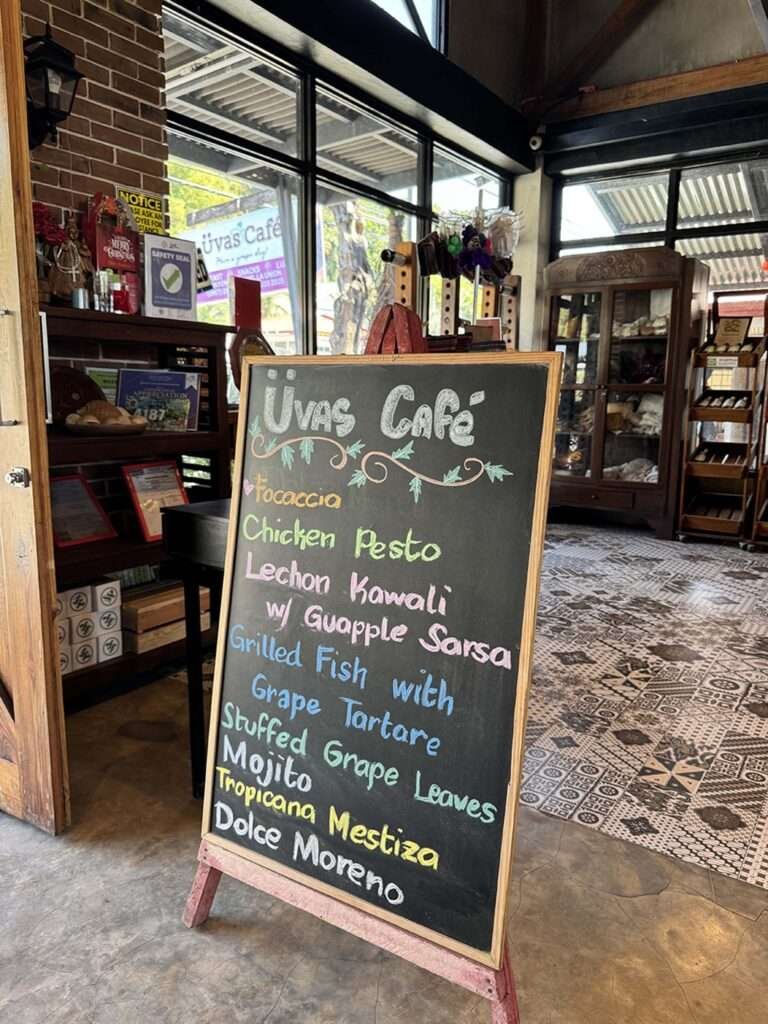 NOTICE
SAFETY SEAL
MERRY
Christmas
Üvas Café
SNACKS
LA UNION
APPRECIATION
4187
Üvas Café
Focaccia
Chicken Pesto
Lechon Kawali
w/ Guapple Sarsa
Grilled Fish with
Grape Tartare
Stuffed Grape Leaves
Mojito
Tropicana Mestiza
Dolce Moreno